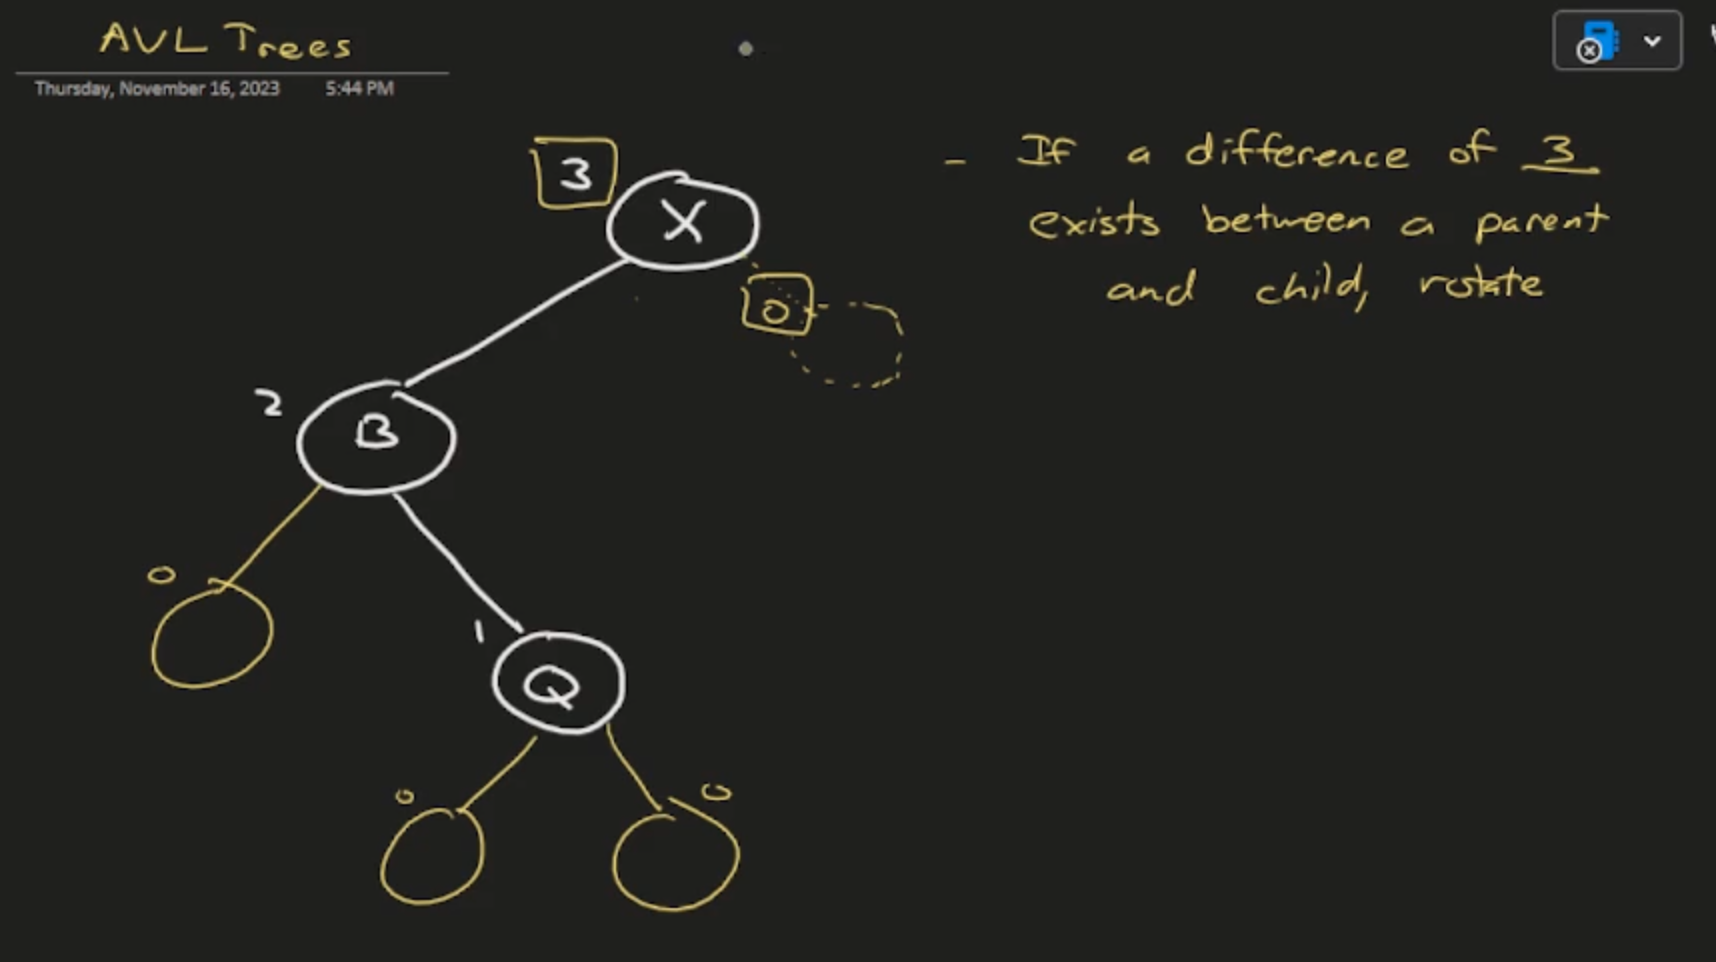 AVL Trees
Thursday, November 16, 2023 5:44 PM
3
X
- If a difference of 3
exists between a parent
and child, rotate
0
2
B
0
1
Q
0
0